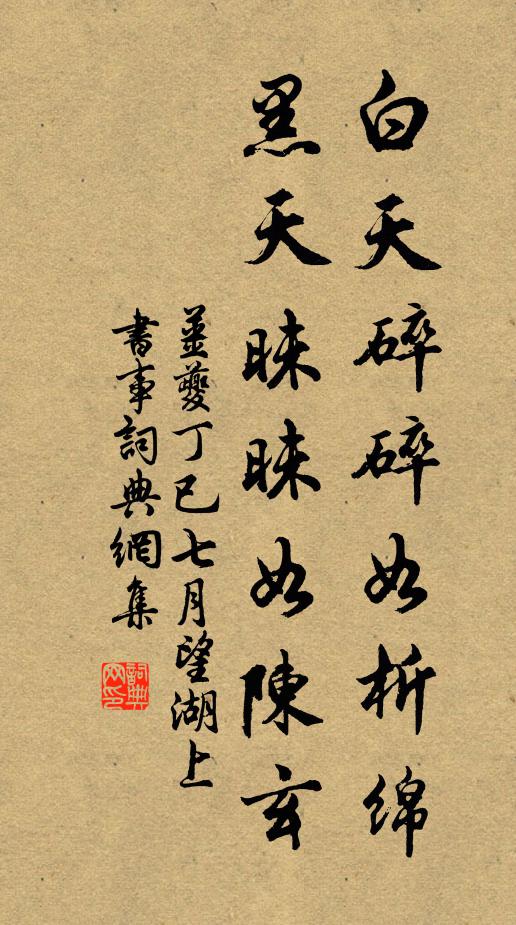 白天碎碎如析綿
黑天昧昧如陳玄
薑夔丁巳七月望湖上
書事詞典網集
詞典
网印